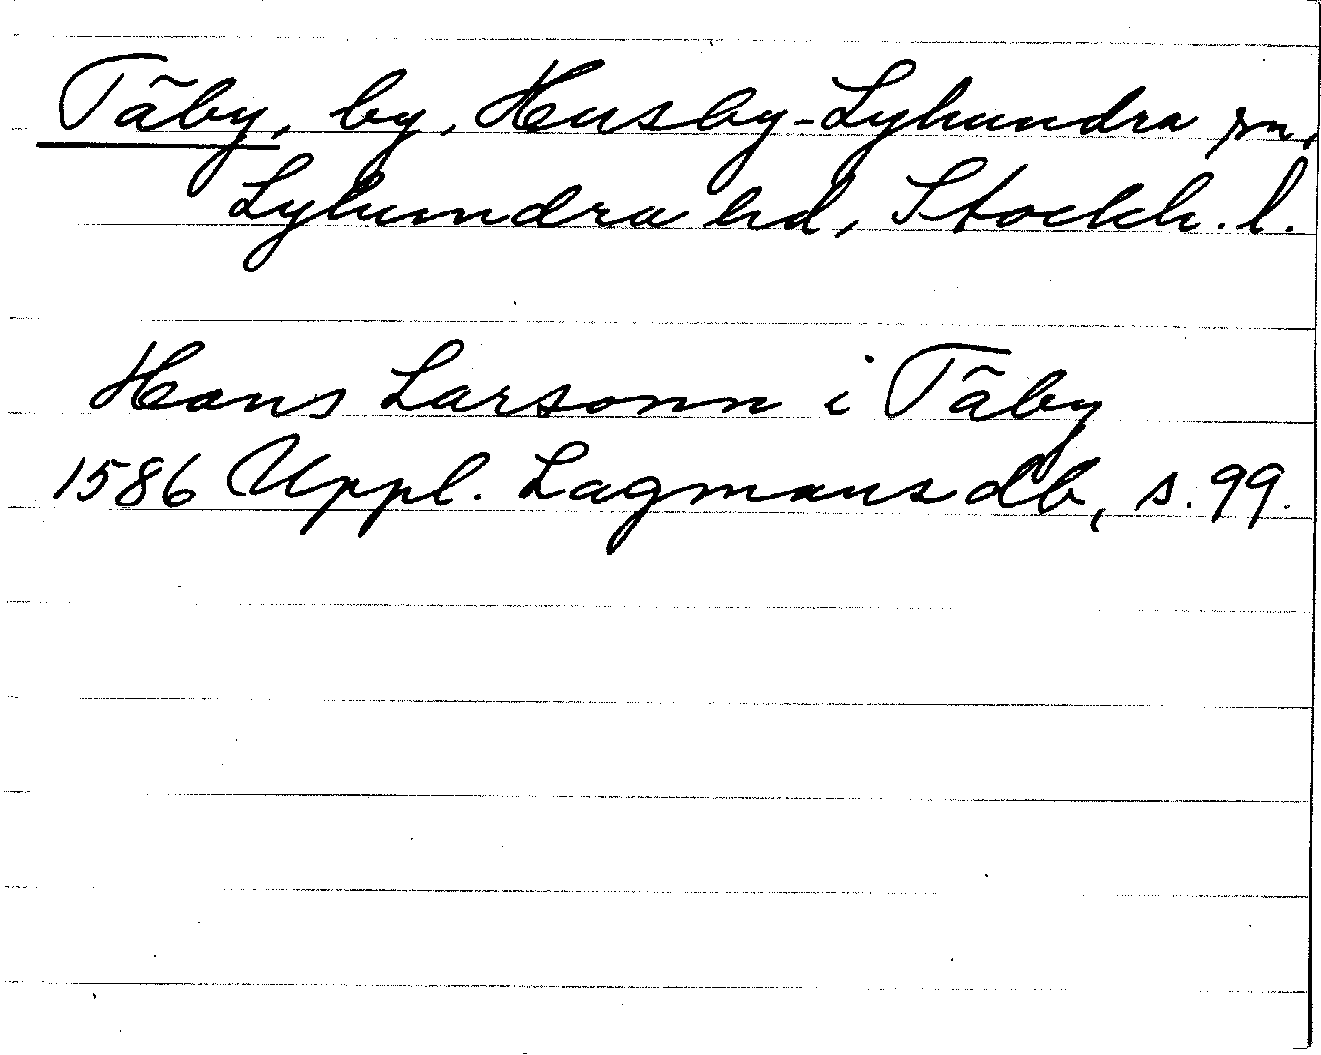 Täby, by, Husby-Lyhundra sn,
Lyhundra hd, Stockh. l.
Hans Larsonn i Täby
1586 Uppl. Lagmansdb, s. 99.